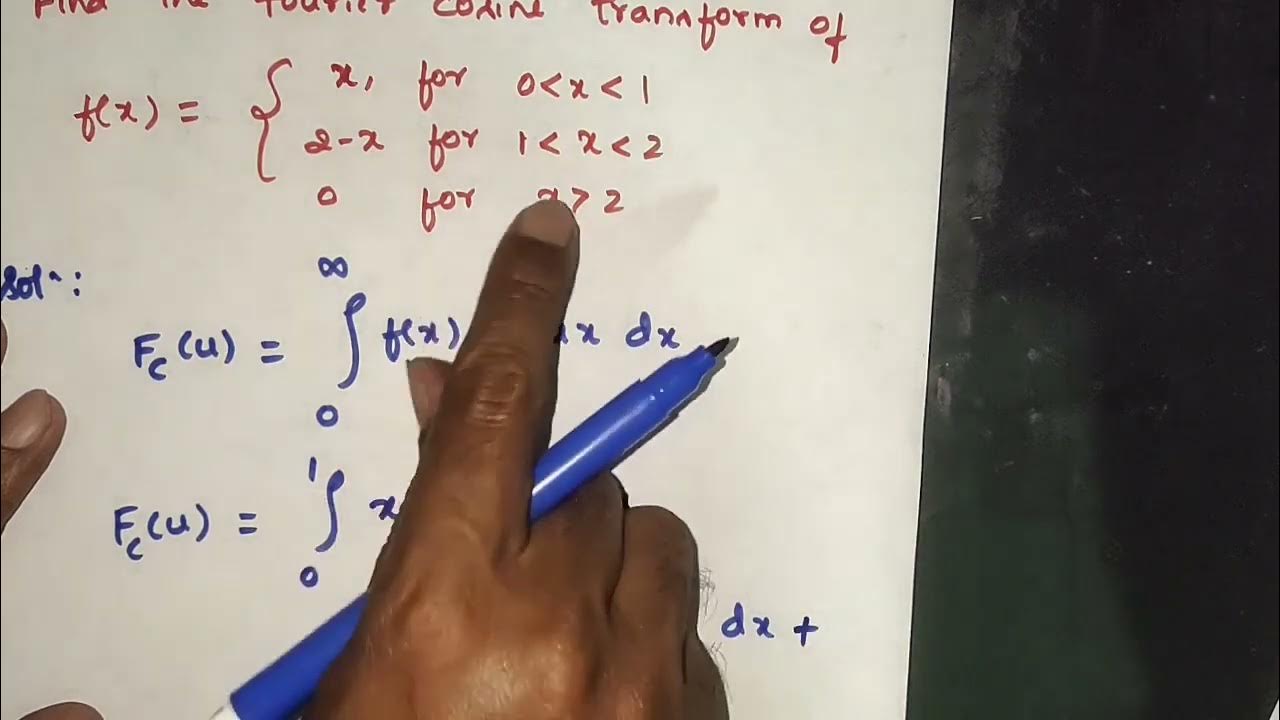 Find the fourier cosine transform of
f(x) = { x, for 0<x<1
2-x for 1<x<2
0 for x>2
Solⁿ:
F_c(u) = ∫₀^∞ f(x) x dx
F_c(u) = ∫₀^1 x
dx +